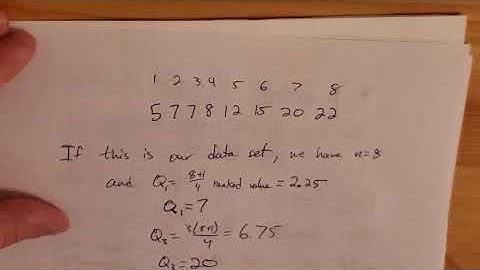 1 2 3 4 5 6 7 8
5 7 7 8 12 15 20 22
If this is our data set, we have n=8
and Q₁= 8+1/4 ranked value = 2.25
Q₁=7
Q₃= 3(8+1)/4 = 6.75
Q₃=20